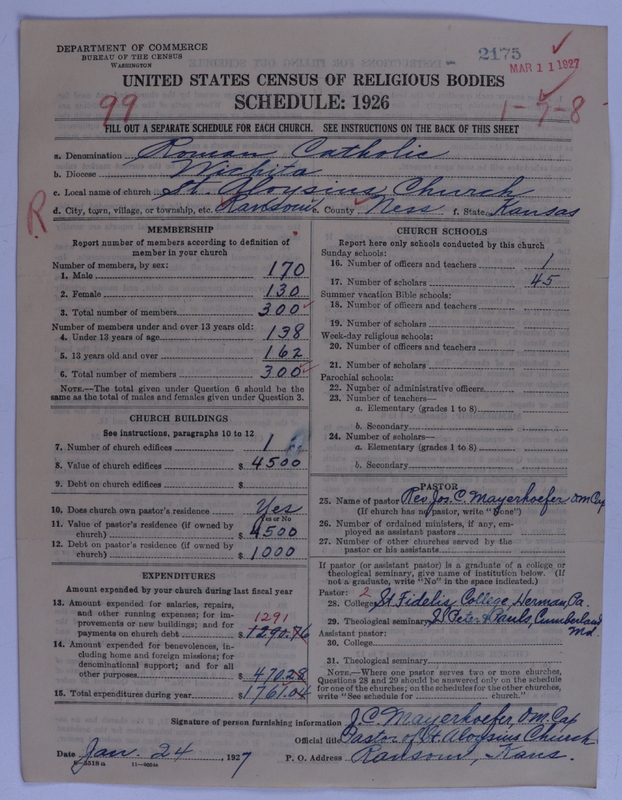 DEPARTMENT OF COMMERCE
BUREAU OF THE CENSUS
WASHINGTON
2175
MAR 11 1927
UNITED STATES CENSUS OF RELIGIOUS BODIES
SCHEDULE: 1926
99
1-7-8
FILL OUT A SEPARATE SCHEDULE FOR EACH CHURCH. SEE INSTRUCTIONS ON THE BACK OF THIS SHEET
a. Denomination Roman Catholic
b. Diocese Wichita
c. Local name of church St. Aloysius Church
R
d. City, town, village, or township, etc. Ransom e. County Ness f. State Kansas
MEMBERSHIP
Report number of members according to definition of
member in your church
Number of members, by sex:
1. Male 170
2. Female 130
3. Total number of members 300
Number of members under and over 13 years old:
4. Under 13 years of age 138
5. 13 years old and over 162
6. Total number of members 300
NOTE.—The total given under Question 6 should be the
same as the total of males and females given under Question 3.
CHURCH BUILDINGS
See instructions, paragraphs 10 to 12
7. Number of church edifices 1
8. Value of church edifices $ 4500
9. Debt on church edifices $
10. Does church own pastor's residence Yes
Yes or No
11. Value of pastor's residence (if owned by
church) $ 4500
12. Debt on pastor's residence (if owned by
church) $ 1000
EXPENDITURES
Amount expended by your church during last fiscal year
13. Amount expended for salaries, repairs,
and other running expenses; for im-
provements or new buildings; and for 1291
payments on church debt $ 1290.76
14. Amount expended for benevolences, in-
cluding home and foreign missions; for
denominational support; and for all
other purposes $ 470.28
15. Total expenditures during year $ 1761.04
CHURCH SCHOOLS
Report here only schools conducted by this church
Sunday schools:
16. Number of officers and teachers 1
17. Number of scholars 45
Summer vacation Bible schools:
18. Number of officers and teachers
19. Number of scholars
Week-day religious schools:
20. Number of officers and teachers
21. Number of scholars
Parochial schools:
22. Number of administrative officers
23. Number of teachers—
a. Elementary (grades 1 to 8)
b. Secondary
24. Number of scholars—
a. Elementary (grades 1 to 8)
b. Secondary
PASTOR
25. Name of pastor Rev. Jos. C. Mayerhoefer O.M.Cap
(If church has no pastor, write "None")
26. Number of ordained ministers, if any, em-
ployed as assistant pastors
27. Number of other churches served by the
pastor or his assistants
If pastor (or assistant pastor) is a graduate of a college or
theological seminary, give name of institution below. (If
not a graduate, write "No" in the space indicated.)
Pastor: 2
28. College St Fidelis College, Herman, Pa.
29. Theological seminary S.S. Peter & Pauls, Cumberland
Md
Assistant pastor:
30. College
31. Theological seminary
NOTE.—Where one pastor serves two or more churches,
Questions 28 and 29 should be answered only on the schedule
for one of the churches; on the schedules for the other churches,
write "See schedule for church."
Signature of person furnishing information J. C. Mayerhoefer, O.M.Cap
Official title Pastor of St. Aloysius Church
Date Jan. 24, 1927 P. O. Address Ransom, Kans.